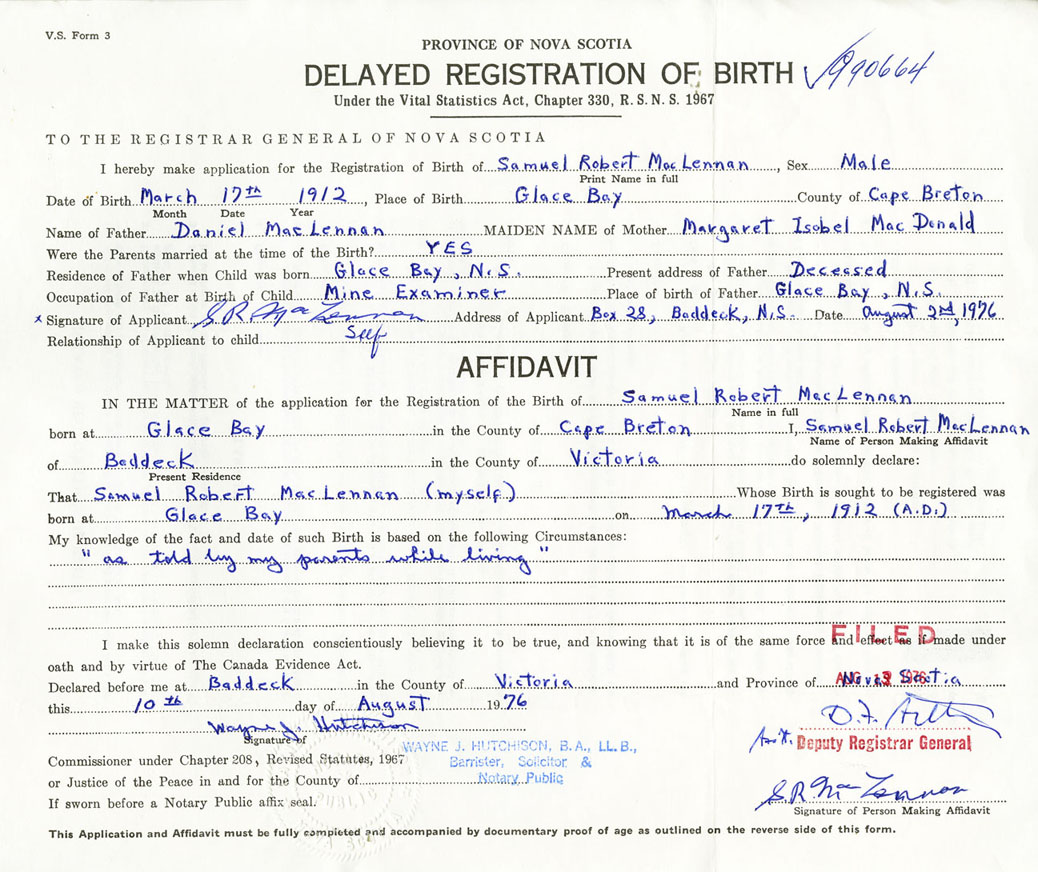 V.S. Form 3
PROVINCE OF NOVA SCOTIA
DELAYED REGISTRATION OF BIRTH 990664
Under the Vital Statistics Act, Chapter 330, R. S. N. S. 1967
TO THE REGISTRAR GENERAL OF NOVA SCOTIA
I hereby make application for the Registration of Birth of Samuel Robert MacLennan, Sex Male
Print Name in full
Date of Birth March 17th 1912, Place of Birth Glace Bay County of Cape Breton
Month Date Year
Name of Father Daniel MacLennan MAIDEN NAME of Mother Margaret Isobel MacDonald
Were the Parents married at the time of the Birth? YES
Residence of Father when Child was born Glace Bay, N.S. Present address of Father Deceased
Occupation of Father at Birth of Child Mine Examiner Place of birth of Father Glace Bay, N.S.
x Signature of Applicant S R MacLennan Address of Applicant Box 28, Baddeck, N.S. Date August 2nd, 1976
Relationship of Applicant to child Self
AFFIDAVIT
IN THE MATTER of the application for the Registration of the Birth of Samuel Robert MacLennan
Name in full
born at Glace Bay in the County of Cape Breton I, Samuel Robert MacLennan
Name of Person Making Affidavit
of Baddeck in the County of Victoria do solemnly declare:
Present Residence
That Samuel Robert MacLennan (myself) Whose Birth is sought to be registered was
born at Glace Bay on March 17th, 1912 (A.D.)
My knowledge of the fact and date of such Birth is based on the following Circumstances:
"as told by my parents while living"
I make this solemn declaration conscientiously believing it to be true, and knowing that it is of the same force and effect as if made under
FILED
oath and by virtue of The Canada Evidence Act.
Declared before me at Baddeck in the County of Victoria and Province of Nova Scotia
AUG 1976
this 10th day of August 1976
Wayne J. Hutchison
Signature of
WAYNE J. HUTCHISON, B.A., LL.B.,
Asst. Deputy Registrar General
Commissioner under Chapter 208, Revised Statutes, 1967
Barrister, Solicitor &
or Justice of the Peace in and for the County of
Notary Public
S.R. MacLennan
If sworn before a Notary Public affix seal.
Signature of Person Making Affidavit
This Application and Affidavit must be fully completed and accompanied by documentary proof of age as outlined on the reverse side of this form.